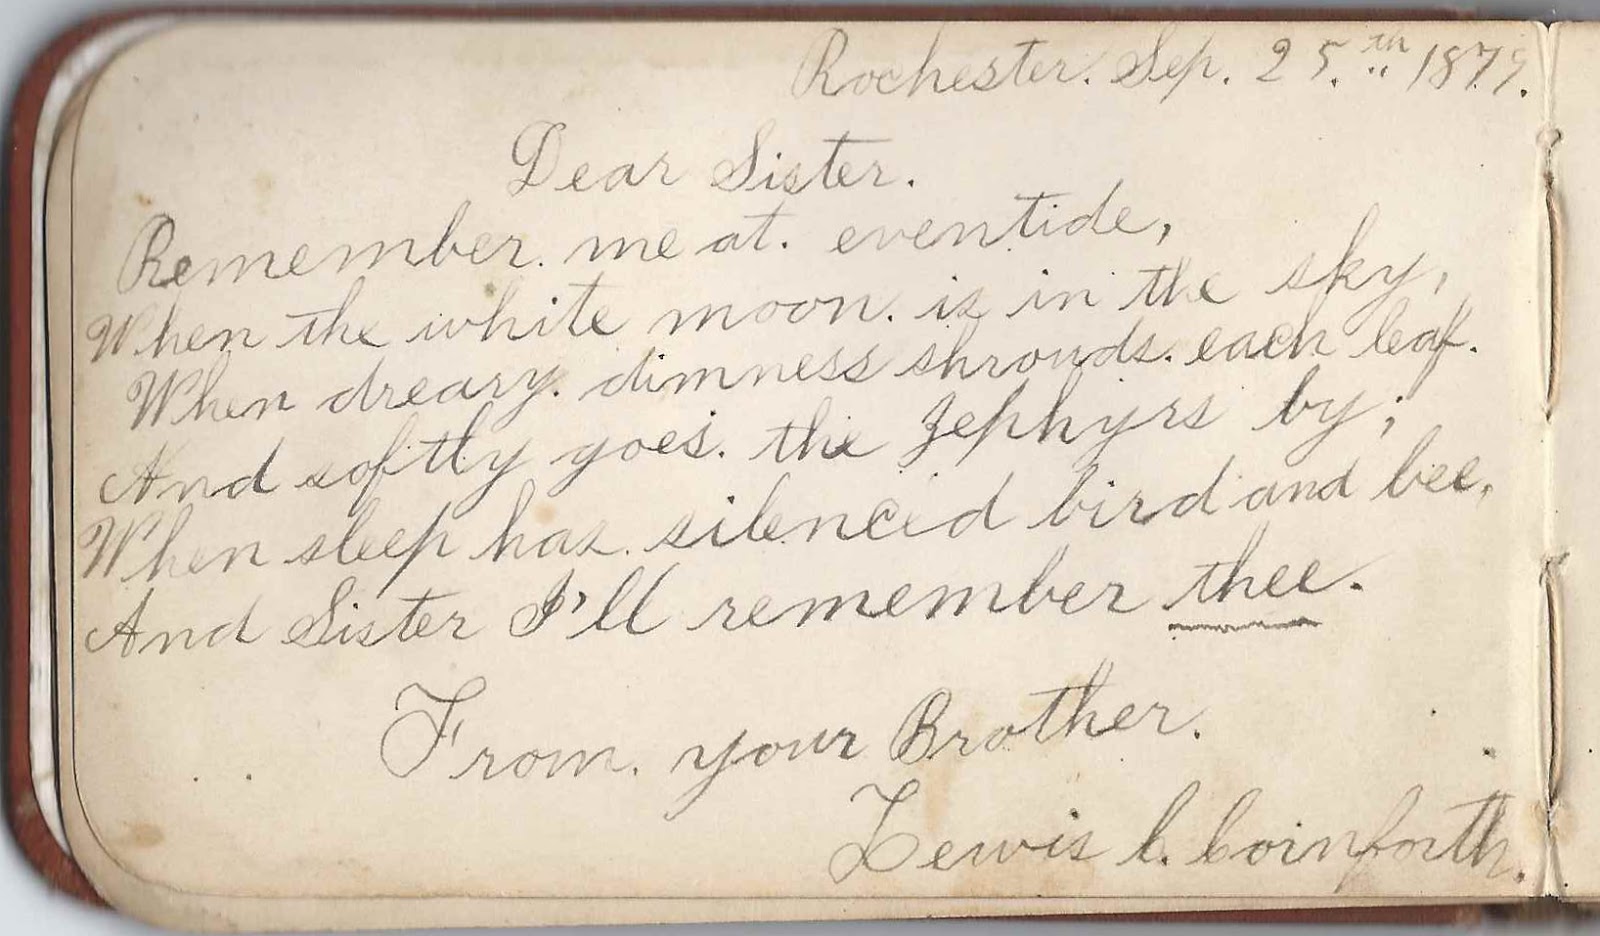 Rochester. Sep. 25.th 1879.
Dear Sister.
Remember. me at. eventide,
When the white moon. is in the sky,
When dreary. dimness shrouds. each leaf.
And softly goes. the Zephyrs by;
When sleep has. silenced bird and bee,
And Sister I'll remember thee.
From. your Brother.
Lewis C. Coinforth.